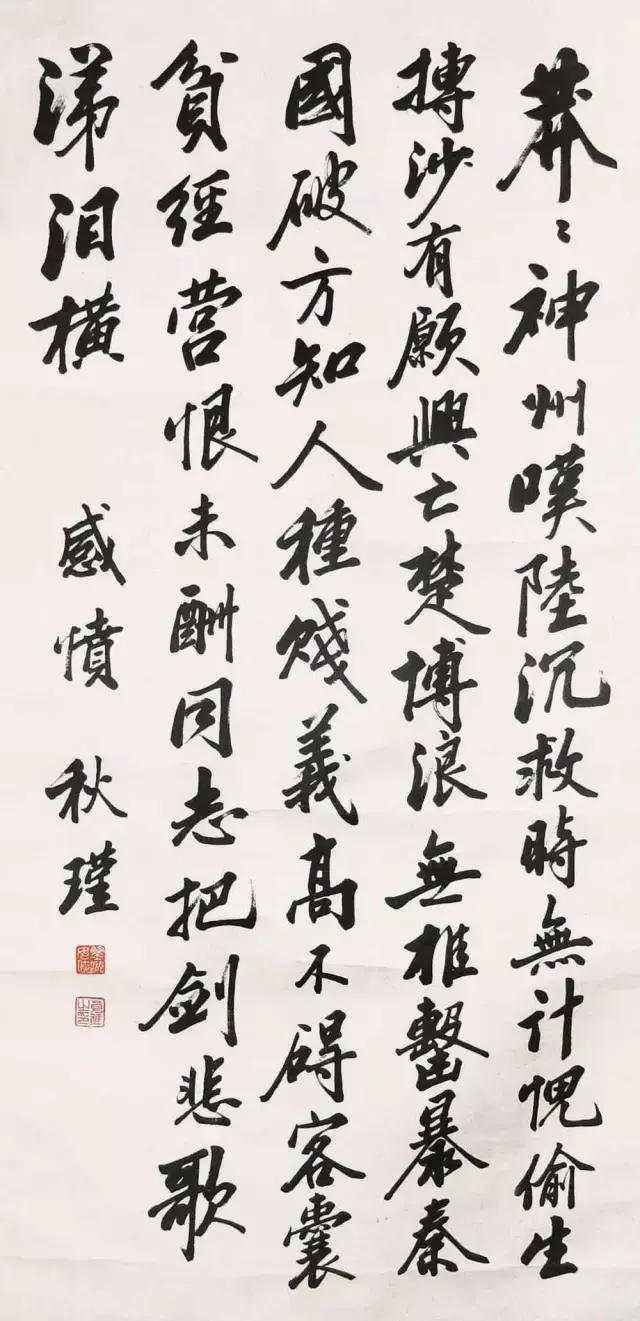 莽〻神州嘆陸沉救時無計愧偷生
摶沙有願興亡楚博浪無椎擊暴秦
國破方知人種賤義高不碍客囊
貧經营恨未酬同志把劍悲歌
涕泪橫 感憤 秋瑾